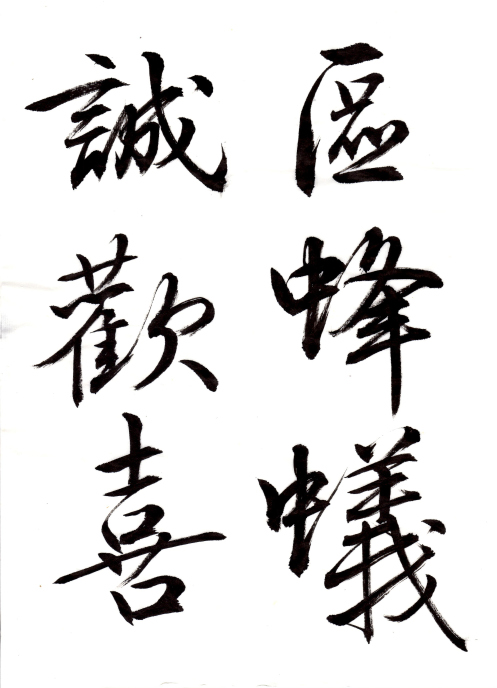 區蜂蟻
誠歡喜